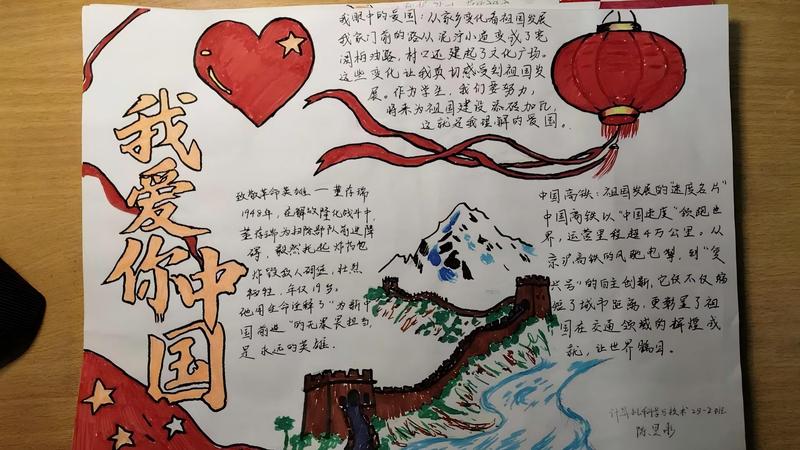 我爱你中国
我眼中的爱国：从家乡变化看祖国发展
我家门前的路从泥泞小道变成了宽
阔柏油路，村口还建起了文化广场。
这些变化让我真切感受到祖国发
展。作为学生，我们要努力，
将来为祖国建设添砖加瓦，
这就是我理解的爱国。
致敬革命英雄——董存瑞
1948年，在解放隆化战斗中，
董存瑞为扫除部队前进障
碍，毅然托起炸药包
炸毁敌人碉堡，壮烈
牺牲，年仅19岁。
他用生命诠释了"为新中
国前进"的无畏与担当，
是永远的英雄．
中国高铁：祖国发展的"速度名片"
中国高铁以"中国速度"领跑世
界，运营里程超4万公里。从
京沪高铁的风驰电掣，到"复
兴号"的自主创新，它不仅缩
短了城市距离，更彰显了祖
国在交通领域的辉煌成
就，让世界瞩目。
计算机科学与技术 23-2班